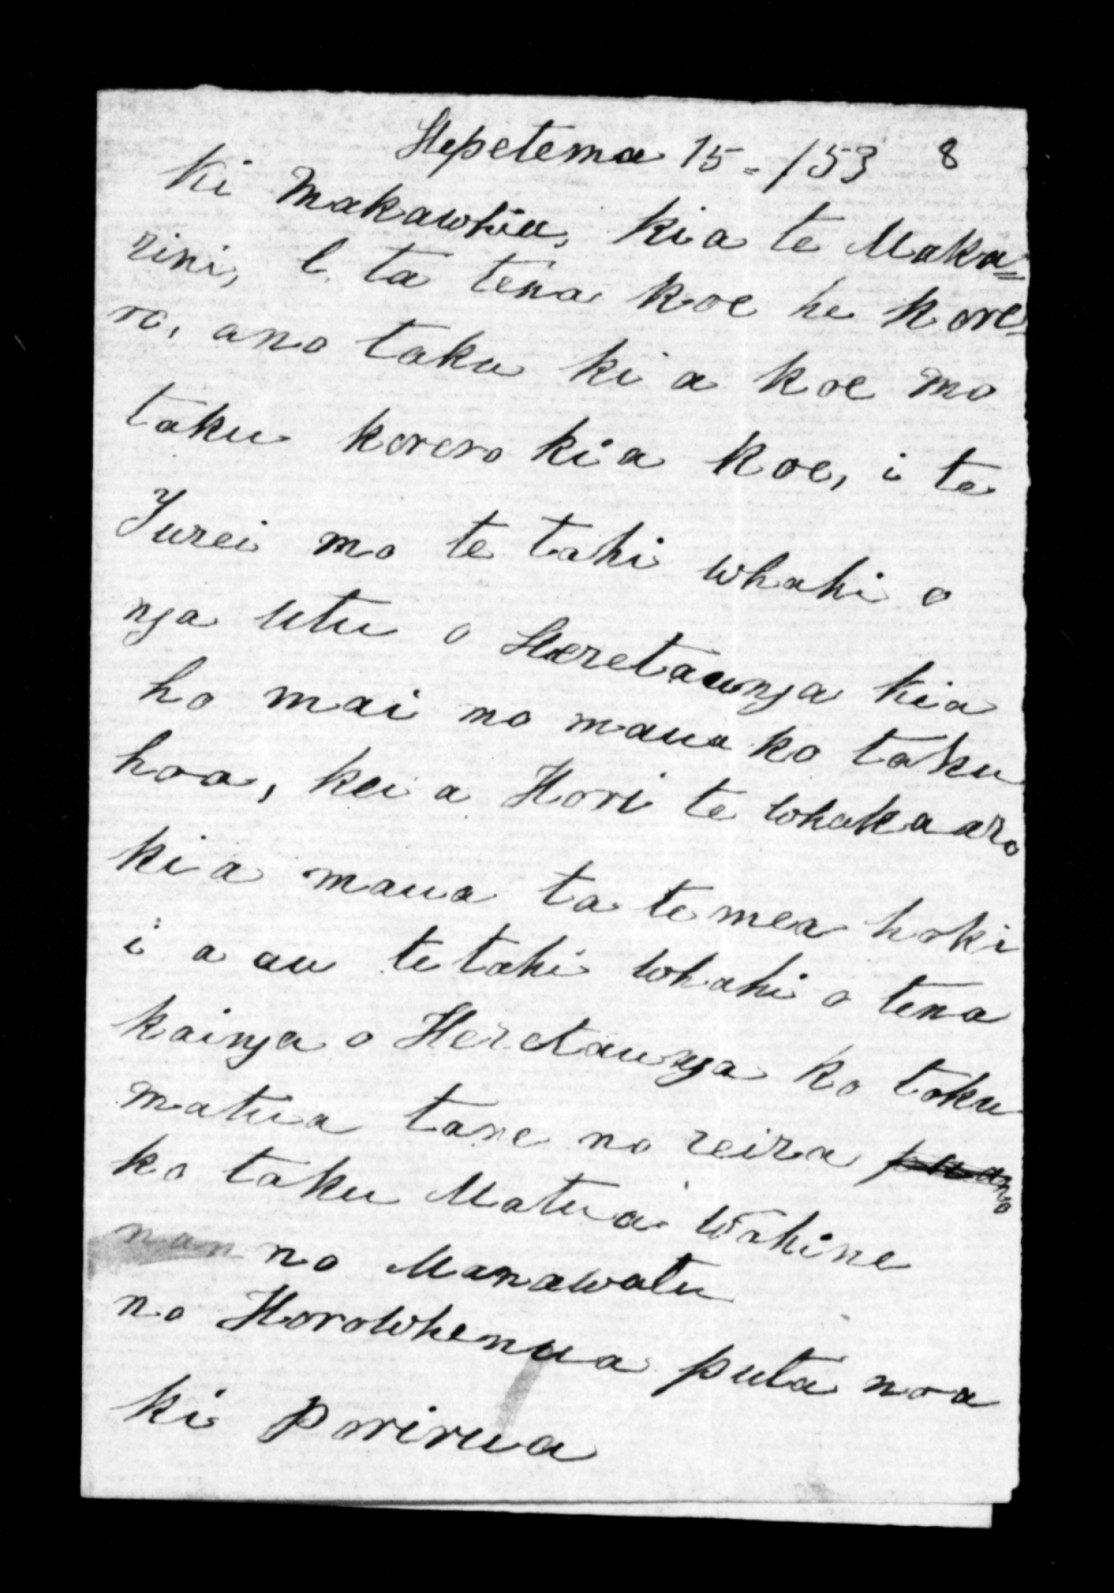 Hepetema 15 - /53 8
Ki Makawhiu, kia te Maka=
rini, E ta tena koe he kore=
ro, ano taku ki a koe mo
taku korero kia koe, i te
Turei mo te tahi whahi o
nga utu o Heretaunga kia
ho mai no maua ko taku
hoa, kei a Hori te whakaaro
kia maua ta te mea hoki
i a au te tahi whahi o tena
kainga o Heretaunga ko toku
matua tane no reira
ko taku Matua Wahine
no Manawatu
no Horowhenua puta noa
ki Porirua